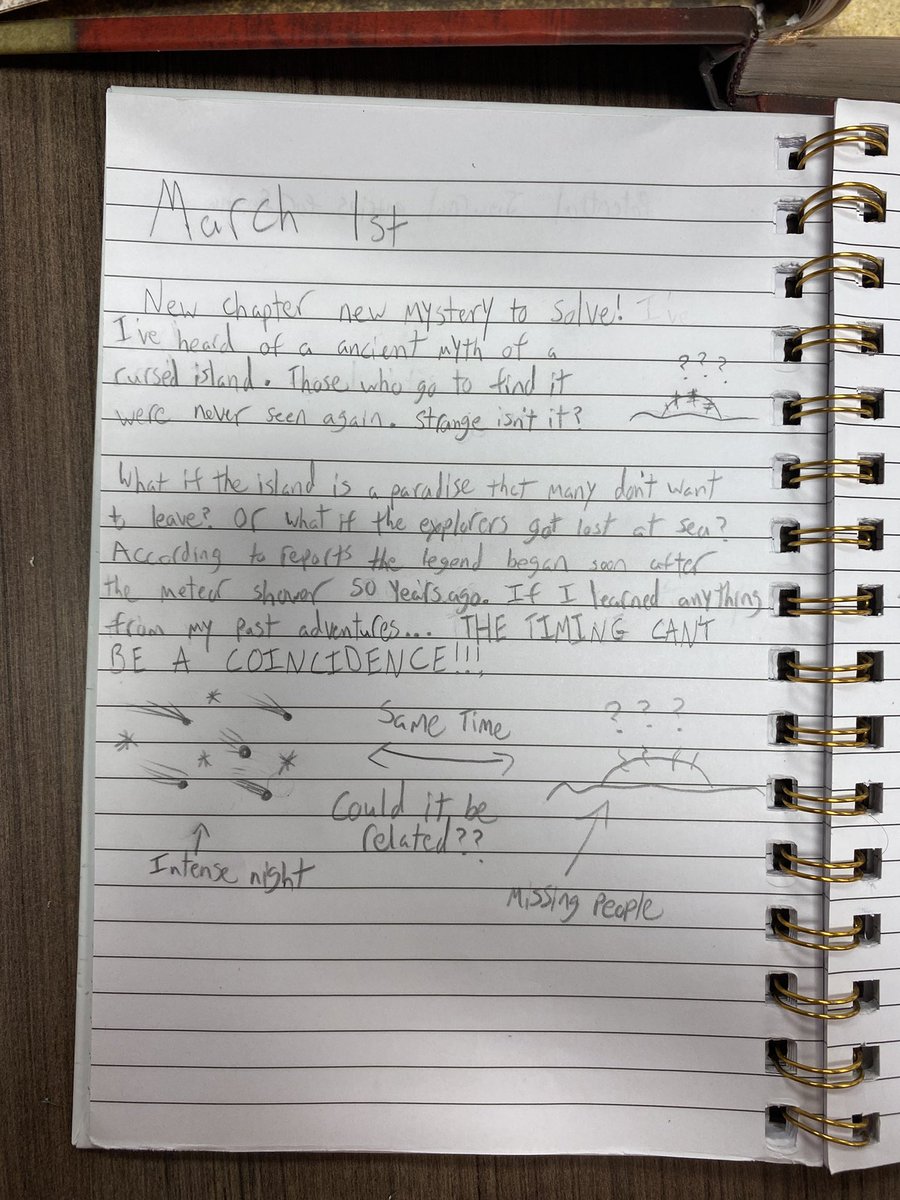 March 1st
New chapter new mystery to solve! I've
I've heard of a ancient myth of a
cursed island. Those who go to find it
were never seen again. Strange isn't it?
???
What if the island is a paradise that many don't want
to leave? Or what if the explorers got lost at sea?
According to reports the legend began soon after
the meteor shower 50 years ago. If I learned anything
from my past adventures... THE TIMING CAN'T
BE A COINCIDENCE!!!
Same Time
? ? ?
Could it be
related??
Intense night
Missing People